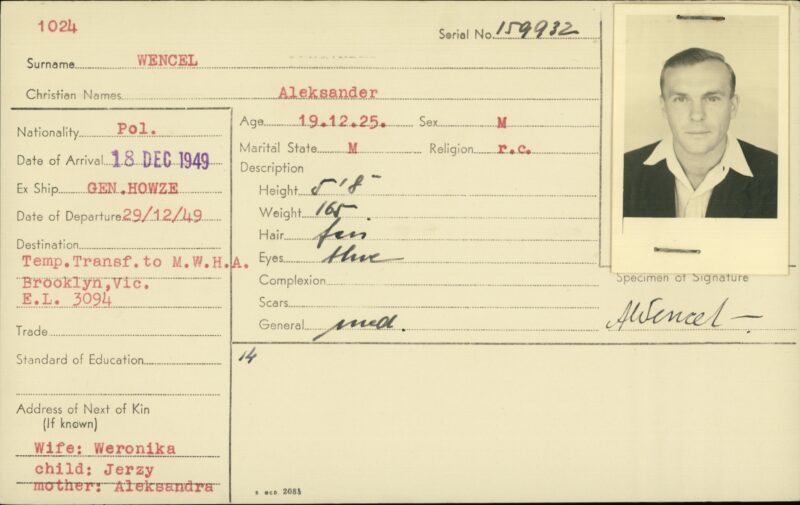 1024
Serial No. 159932
Surname WENCEL
Christian Names Aleksander
Nationality Pol.
Date of Arrival 18 DEC 1949
Ex Ship GEN.HOWZE
Date of Departure 29/12/49
Destination
Temp.Transf.to M.W.H.A.
Brooklyn,Vic.
E.L. 3094
Trade
Standard of Education
Address of Next of Kin
(If known)
Wife: Weronika
child: Jerzy
mother: Aleksandra
Age 19.12.25. Sex M
Marital State M Religion r.c.
Description
Height 5'8"
Weight 165
Hair fair
Eyes blue
Complexion
Scars
General med.
14
Specimen of Signature
AWencel